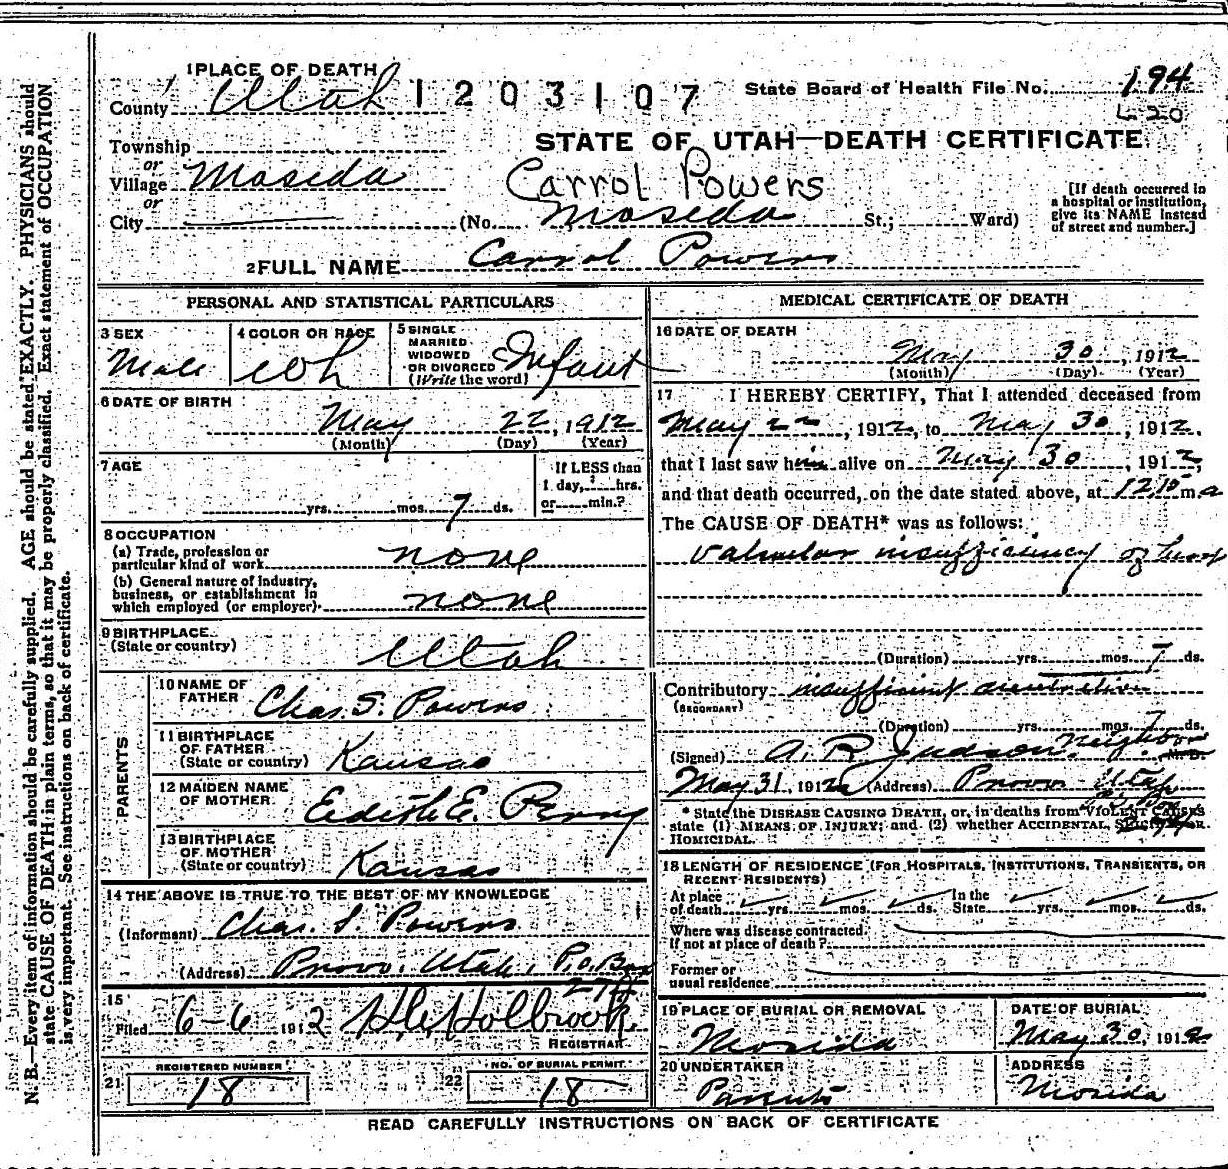 1 PLACE OF DEATH
County Utah 1203107 State Board of Health File No. 194
420
STATE OF UTAH—DEATH CERTIFICATE
Township
or
Village Mosida Carrol Powers
or
City (No. Mosida St.; Ward)
[If death occurred in
a hospital or institution,
give its NAME instead
of street and number.]
2 FULL NAME Carrol Powers
PERSONAL AND STATISTICAL PARTICULARS
3 SEX Male
4 COLOR OR RACE Wh
5 SINGLE
MARRIED
WIDOWED
OR DIVORCED
(Write the word) Infant
6 DATE OF BIRTH
May 22, 1912
(Month) (Day) (Year)
7 AGE
yrs. mos. 7 ds.
If LESS than
1 day, hrs.
or min.?
8 OCCUPATION
(a) Trade, profession or
particular kind of work none
(b) General nature of industry,
business, or establishment in
which employed (or employer) none
9 BIRTHPLACE
(State or country) Utah
PARENTS
10 NAME OF
FATHER Chas. S. Powers
11 BIRTHPLACE
OF FATHER
(State or country) Kansas
12 MAIDEN NAME
OF MOTHER Edith E. Perry
13 BIRTHPLACE
OF MOTHER
(State or country) Kansas
14 THE ABOVE IS TRUE TO THE BEST OF MY KNOWLEDGE
(Informant) Chas. S. Powers
(Address) Provo, Utah, P.O. Box
15
Filed 6-6 1912 Holbrook
REGISTRAR
REGISTERED NUMBER
21 18
NO. OF BURIAL PERMIT
22 18
MEDICAL CERTIFICATE OF DEATH
16 DATE OF DEATH
May 30, 1912
(Month) (Day) (Year)
17 I HEREBY CERTIFY, That I attended deceased from
May 22, 1912, to May 30, 1912,
that I last saw him alive on May 30, 1912,
and that death occurred, on the date stated above, at 12.15 m a
The CAUSE OF DEATH* was as follows:
Valvular insufficiency of heart
(Duration) yrs. mos. 7 ds.
Contributory insufficient
(SECONDARY)
(Duration) yrs. mos. 7 ds.
(Signed) A. R. Judson, Neighbor M. D.
May 31, 1912 (Address) Provo Utah
*State the DISEASE CAUSING DEATH, or, in deaths from VIOLENT CAUSES
state (1) MEANS OF INJURY; and (2) whether ACCIDENTAL, SUICIDAL OR
HOMICIDAL.
18 LENGTH OF RESIDENCE (FOR HOSPITALS, INSTITUTIONS, TRANSIENTS, OR
RECENT RESIDENTS)
At place
of death yrs. mos. ds.
In the
State yrs. mos. ds.
Where was disease contracted
If not at place of death?
Former or
usual residence
19 PLACE OF BURIAL OR REMOVAL
Mosida
DATE OF BURIAL
May 30, 1912
20 UNDERTAKER
Parents
ADDRESS
Mosida
READ CAREFULLY INSTRUCTIONS ON BACK OF CERTIFICATE
N. B.—Every item of information should be carefully supplied. AGE should be stated EXACTLY. PHYSICIANS should
state CAUSE OF DEATH in plain terms, so that it may be properly classified. Exact statement of OCCUPATION
is very important. See instructions on back of certificate.